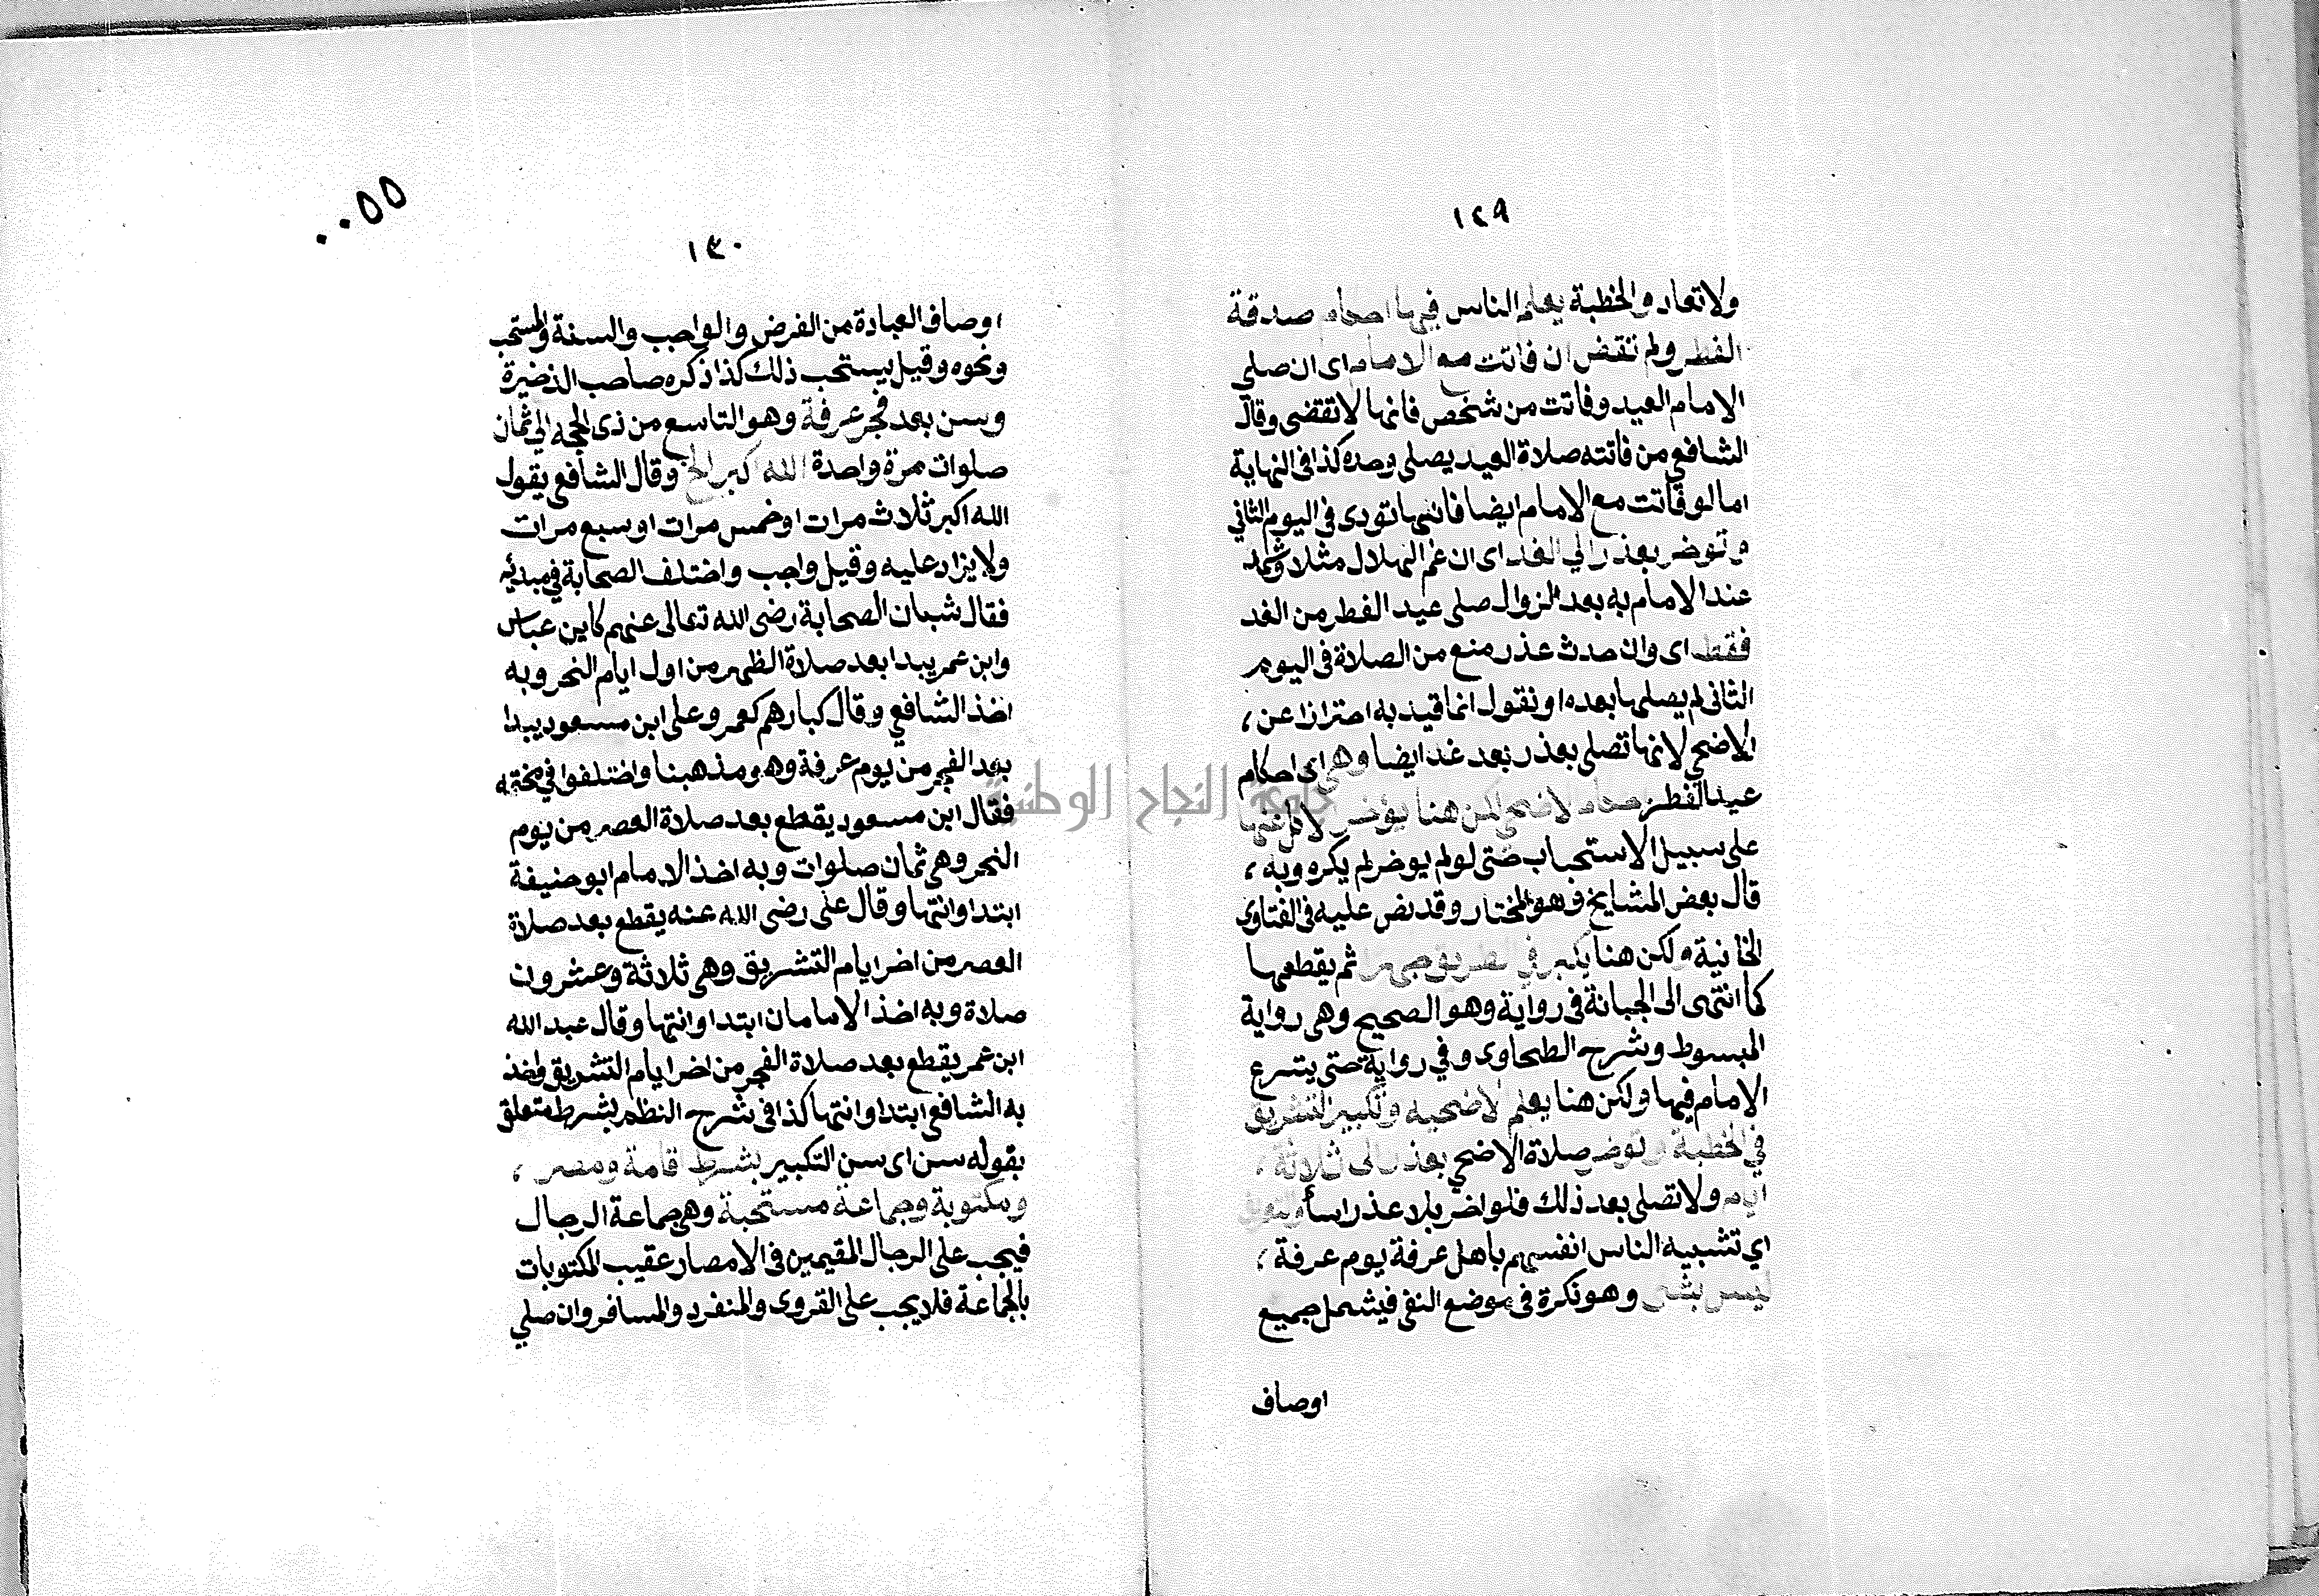 ١٢٩
ولا تعاد والخطبة يعلم الناس فيها احكام صدقة
الفطر ولم تقض ان فاتت مع الامام اى ان صلى
الامام العيد وفاتت من شخص فانها لا تقضى وقال
الشافعي من فاتته صلاة العيد يصلى وحده كذا فى النهاية
اما لو فاتت مع الامام ايضا فانها تودى فى اليوم الثاني
وتوخر بعذر الي الغد اى ان غم الهلال مثلا وشهد
عند الامام به بعد الزوال صلى عيد الفطر من الغد
فقط اى وان حدث عذر منع من الصلاة فى اليوم
الثانى لم يصلها بعده او نقول انما قيد به احترازا عن ،
الاضحي لانها تصلى بعذر بعد غد ايضا وهي اى احكام
عيد الفطر احكام الاضحي لكن هنا يؤخر الاكل عنها
على سبيل الاستحباب حتى لو لم يوخر لم يكره وبه ،
قال بعض المشايخ وهو المختار وقد نص عليه فى الفتاوى
الخانية ولكن هنا يكبر في الطريق جهرا ثم يقطعها
كما انتهى الى الجبانة فى رواية وهو الصحيح وهى رواية
المبسوط وشرح الطحاوى وفي رواية حتى يشرع
الامام فيها ولكن هنا يعلم الاضحيه وتكبير التشريق
في الخطبة وتوخر صلاة الاضحي بعذر الى ثلاثة ،
ايام ولا تصلى بعد ذلك فلو اخر بلا عذر اساء والتعريف
اي تشبيه الناس انفسهم باهل عرفة يوم عرفة ،
ليس بشى وهو نكرة فى موضع النفى فيشمل جميع
اوصاف
٠٠٥٥
١٣٠
اوصاف العبادة من الفرض والواجب والسنة والمستحب
ونحوه وقيل يستحب ذلك كذا ذكره صاحب الذخيرة
وسن بعد فجر عرفة وهو التاسع من ذى الحجه الي ثمان
صلوات مرة واحدة الله اكبر الخ وقال الشافعي يقول
الله اكبر ثلاث مرات او خمس مرات او سبع مرات
ولا يزاد عليه وقيل واجب واختلف الصحابة في مبدئه
فقال شبان الصحابة رضى الله تعالى عنهم كابن عباس
وابن عمر يبدا بعد صلاة الظهر من اول ايام النحر وبه
اخذ الشافعي وقال كبارهم كعمر وعلى ابن مسعود يبدا
بعد الفجر من يوم عرفة وهو مذهبنا واختلفوا في مختمه
فقال ابن مسعود يقطع بعد صلاة العصر من يوم
النحر وهى ثمان صلوات وبه اخذ الامام ابو حنيفة
ابتدا وانتها وقال على رضى الله عنه يقطع بعد صلاة
العصر من اخر ايام التشريق وهى ثلاثة وعشرون
صلاة وبه اخذ الامامان ابتدا وانتها وقال عبد الله
ابن عمر يقطع بعد صلاة الفجر من اخر ايام التشريق واخذ
به الشافعى ابتدا وانتها كذا فى شرح النظم بشرط متعلق
بقوله سن اى سن التكبير بشرط اقامة ومصر ،
ومكتوبة وجماعة مستحبة وهى جماعة الرجال
فيجب على الرجال المقيمين فى الامصار عقيب المكتوبات
بالجماعة فلا يجب على القروى والمنفرد والمسافر وان صلي
جامعة النجاح الوطنية